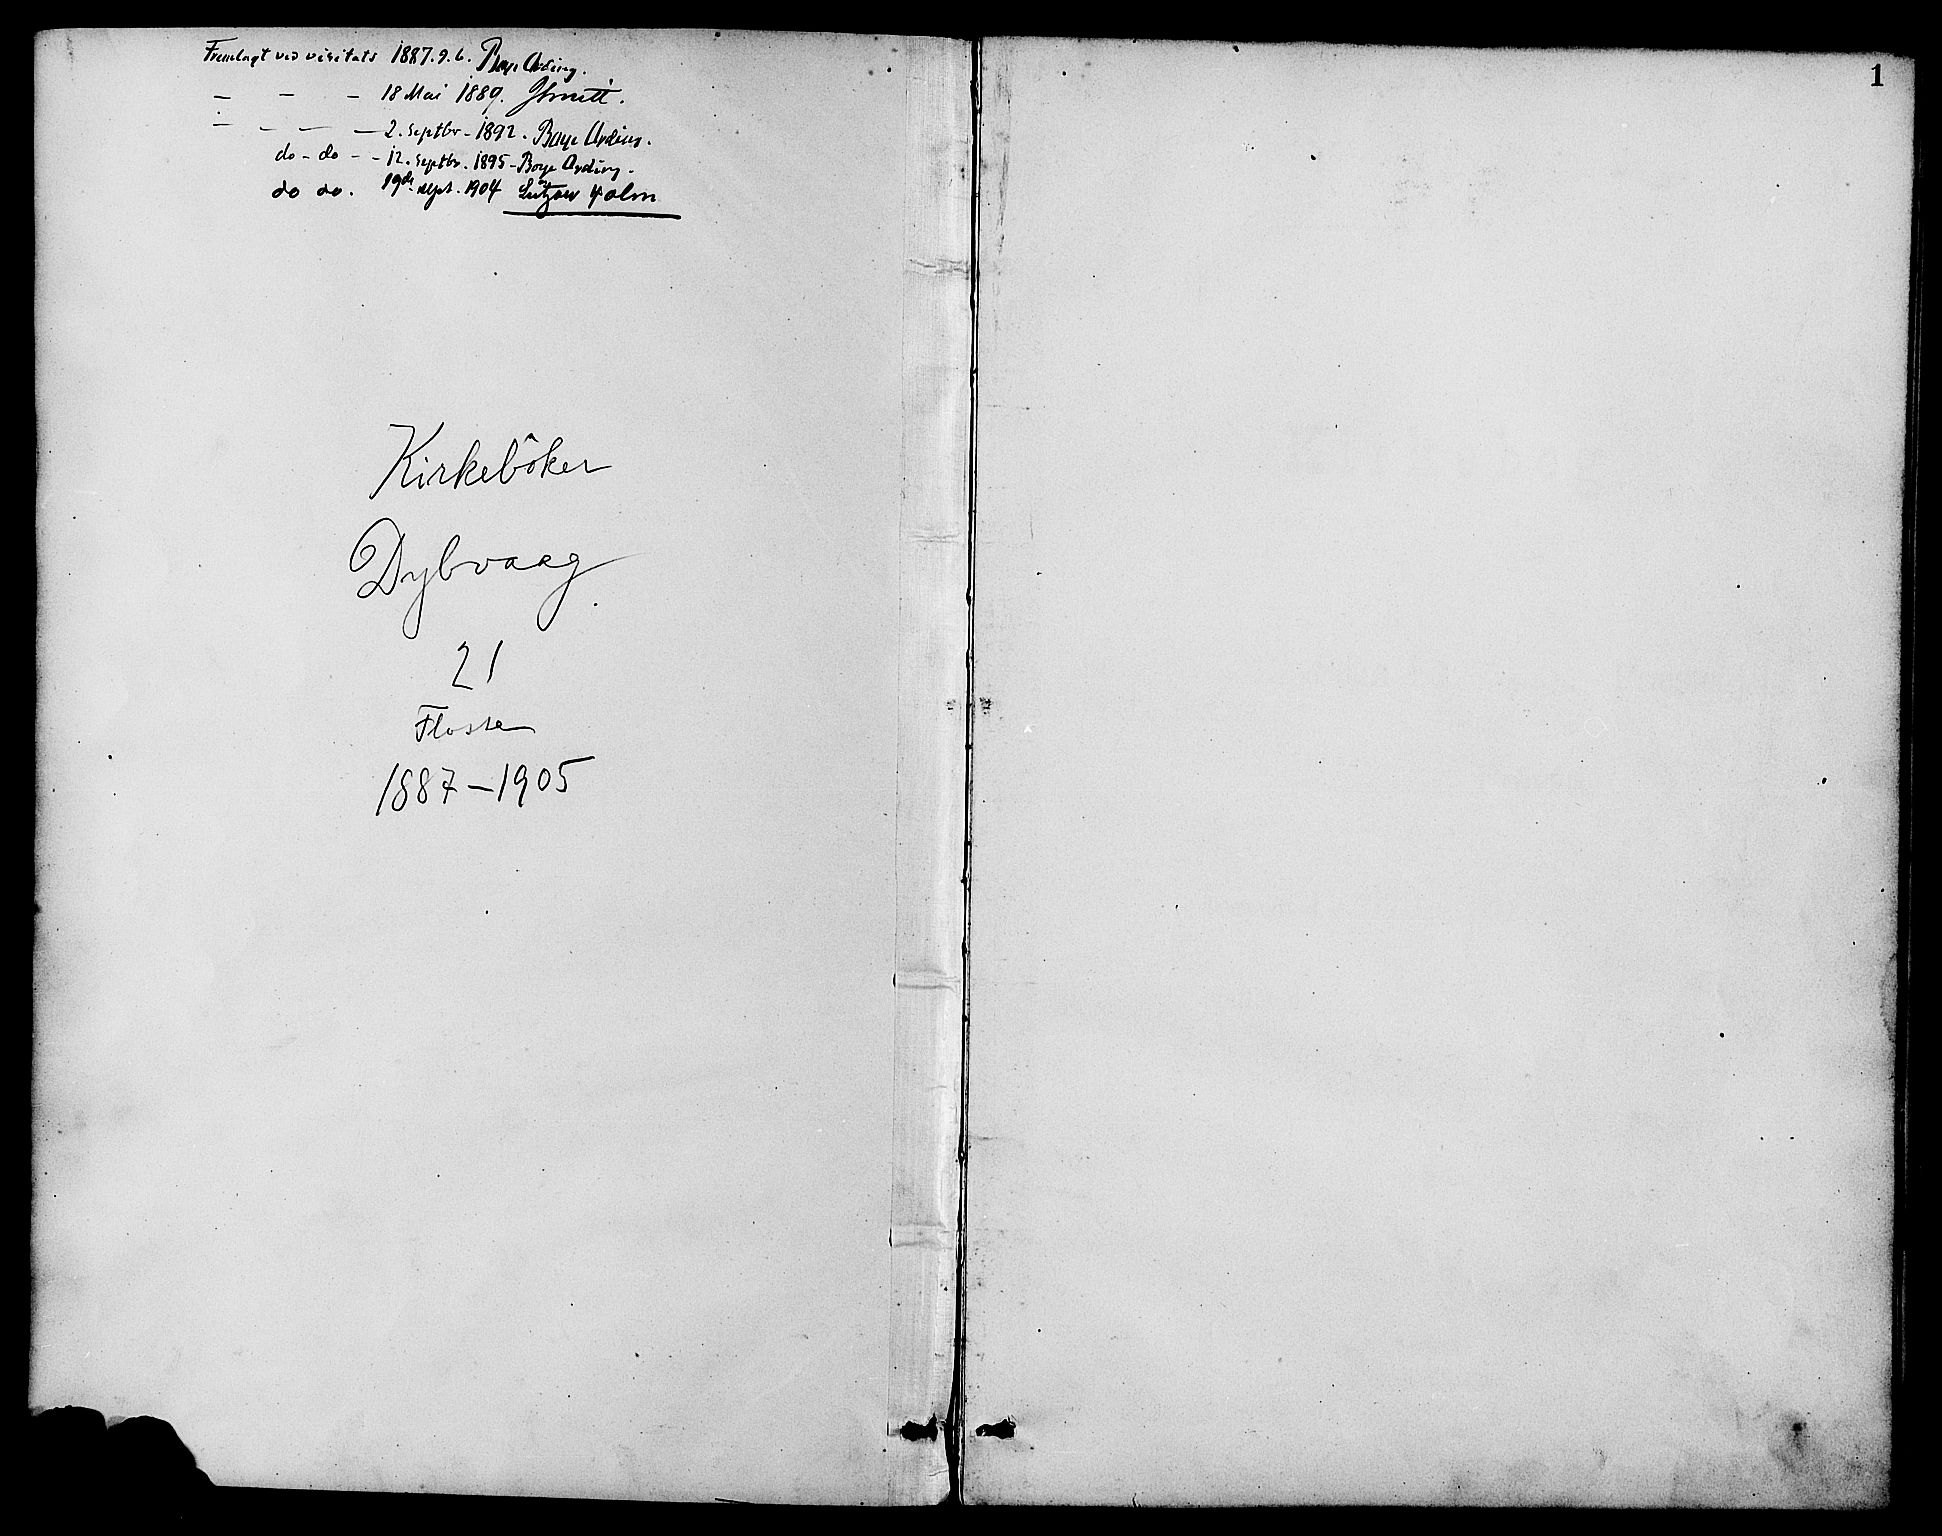 Fremlagt ved visitats 1887.9.6. Boye Arding.
— — — 18 Mai 1889.
— — — — 2. Septbr. 1892. Boye Arding.
do - do - - 12. Septbr. 1895 - Boye Arding.
do do. 19de sept. 1904 Lützow Holm
Kirkebôker
Dybvaag
21
Flosta
1887-1905
1